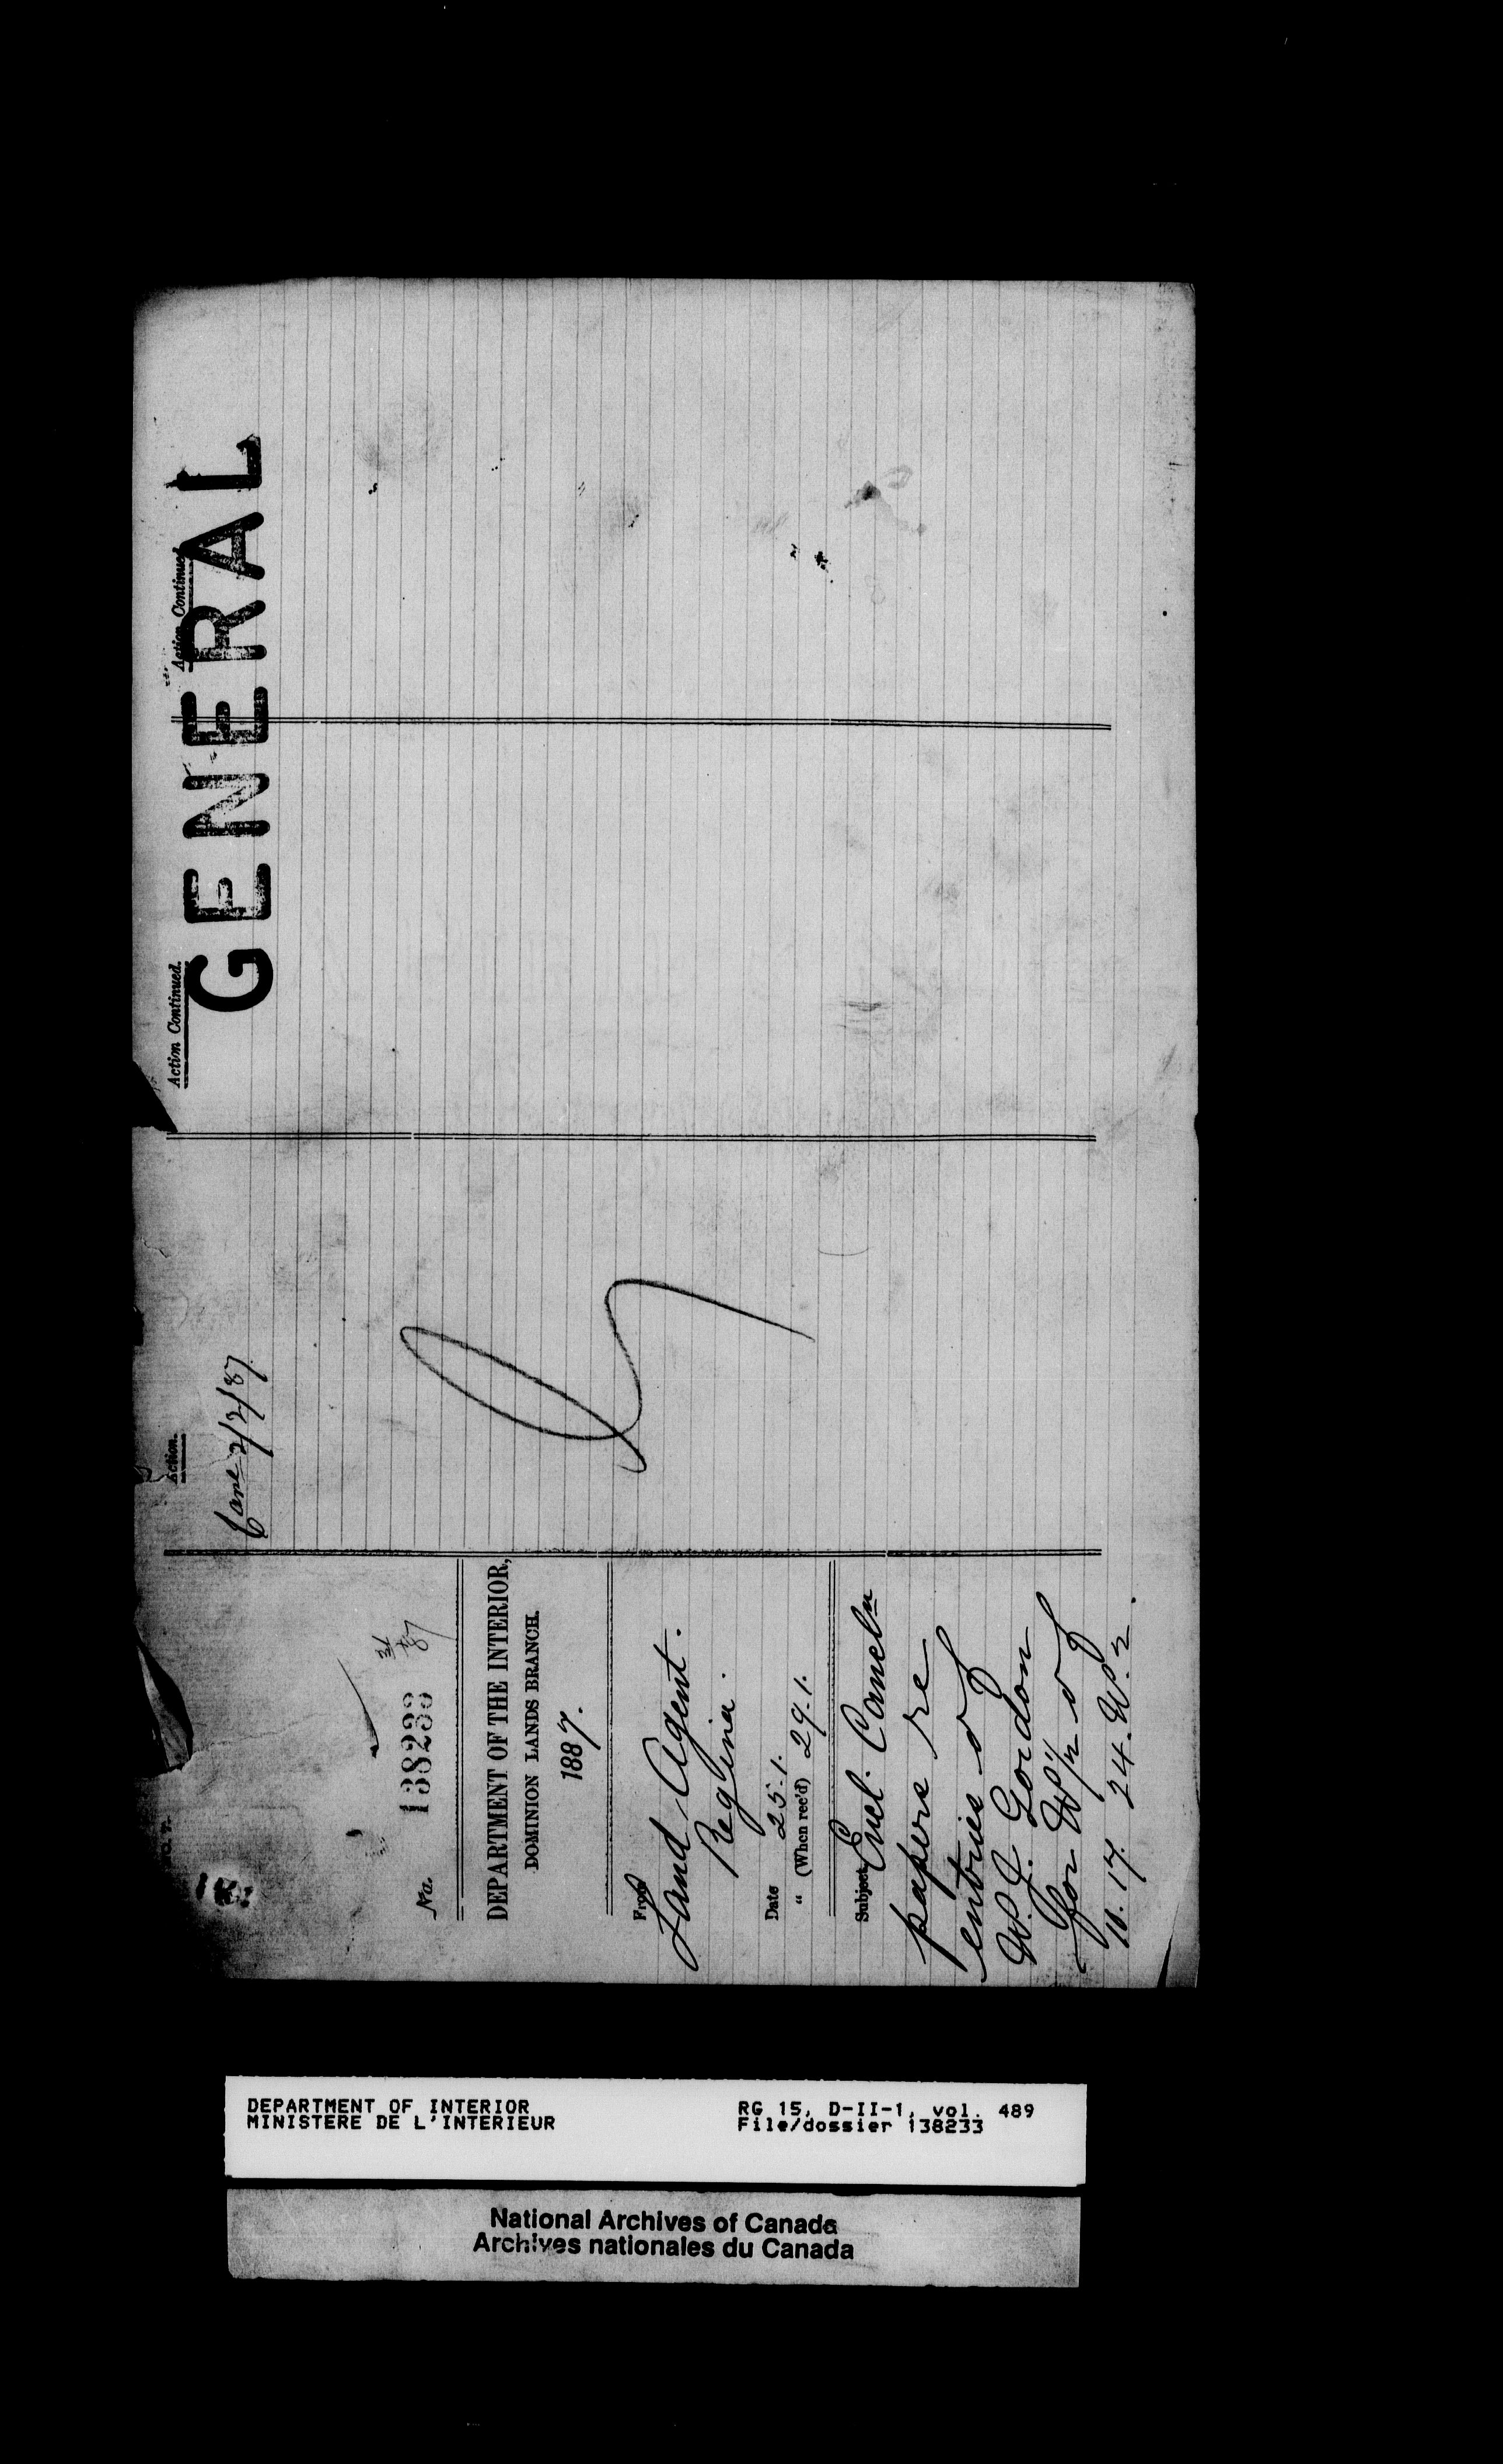 GENERAL
No. 138233
DEPARTMENT OF THE INTERIOR,
DOMINION LANDS BRANCH.
1887.
From
Land Agent.
Regina.
Date 25.1.
" (When rec'd) 29.1.
Subject Encl. Cancln
papers re
entries of
W. J. Gordon
for W ½ of
10. 17. 24. W. 2.
Action.
2/2/87
Action Continued.
Action Continued.
DEPARTMENT OF INTERIOR
MINISTERE DE L'INTERIEUR
RG 15, D-II-1, vol. 489
File/dossier 138233
National Archives of Canada
Archives nationales du Canada